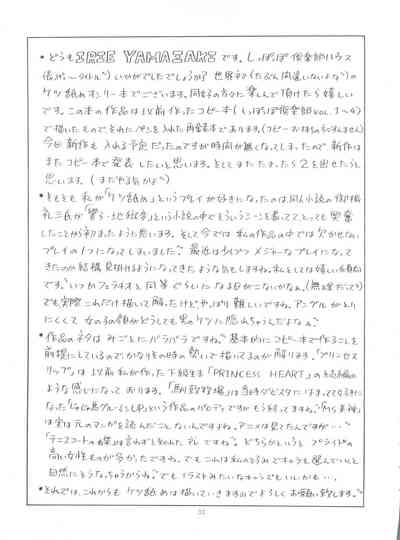 ・どうも IRIE YAMAZAKI です。しっぽっぽ倶楽部ハウス
いかがでしたでしょうか? 世界初(たぶん間違いないよな)の
ケツ舐めオンリー本でございます。同好の方々に楽しんで頂けたら嬉しい
です。この本の作品は以前作ったコピー本(しっぽっぽ倶楽部VOL. 1~4)
で描いたものでそれにペンを入れた再録本であります(コピー本お持ちの方すいません)
今回新作も入れる予定だったのですが時間が無くなってしまったので新作は
またコピー本で発表したいと思います。そしてまたたまったら2を出せたらと
思います。(まだやる気かよ)
・そもそも私が「ケツ舐め」というプレイが好きになったのは、同人小説の
という小説の中でそういうことを書いててとっても興奮
したことから始まったように思います。そして今では私の作品の中では欠かせない
プレイの1つになってしまいました? 最近は少しづつメジャーなプレイになって
きたのか結構見掛けるようになってきたような気もしますね。私としては嬉しい傾向
です。いつかフェラチオと同等ぐらいになる日がこないかなぁ。(無理だって)
でも実際これだけ描いて解ったけど、やっぱり難しいですね。アングルがとり
にくくて女の子の顔がどうしても男のケツに隠れちゃうんだよなぁ?
・作品のネタはみごとにバラバラですね。基本的にコピー本で作ることを
前提にしているのでかなりその時の勢いで描いてるのが解ります。「プリンセス
リップ」は以前私が作った下級生本「PRINCESS HEART」の続編の
ような感じになっております。は当時
なったという作品のパロディですが もう終ってますね。
は実は元のマンガを読んだことないんですよね。アニメは見てたんですが…
「テニスコートの蝶」は言わずと知れたアレですね。どちらかというとプライドの
高い女性ものが多かったですね。でもこれは私の好みでキャラも選んでいくと
自然にそうなっちゃうからね。でもイラストみたいなキャラでもいいかも…。
・それでは、これからもケツ舐めは描いていきますのでよろしくお願い致します。